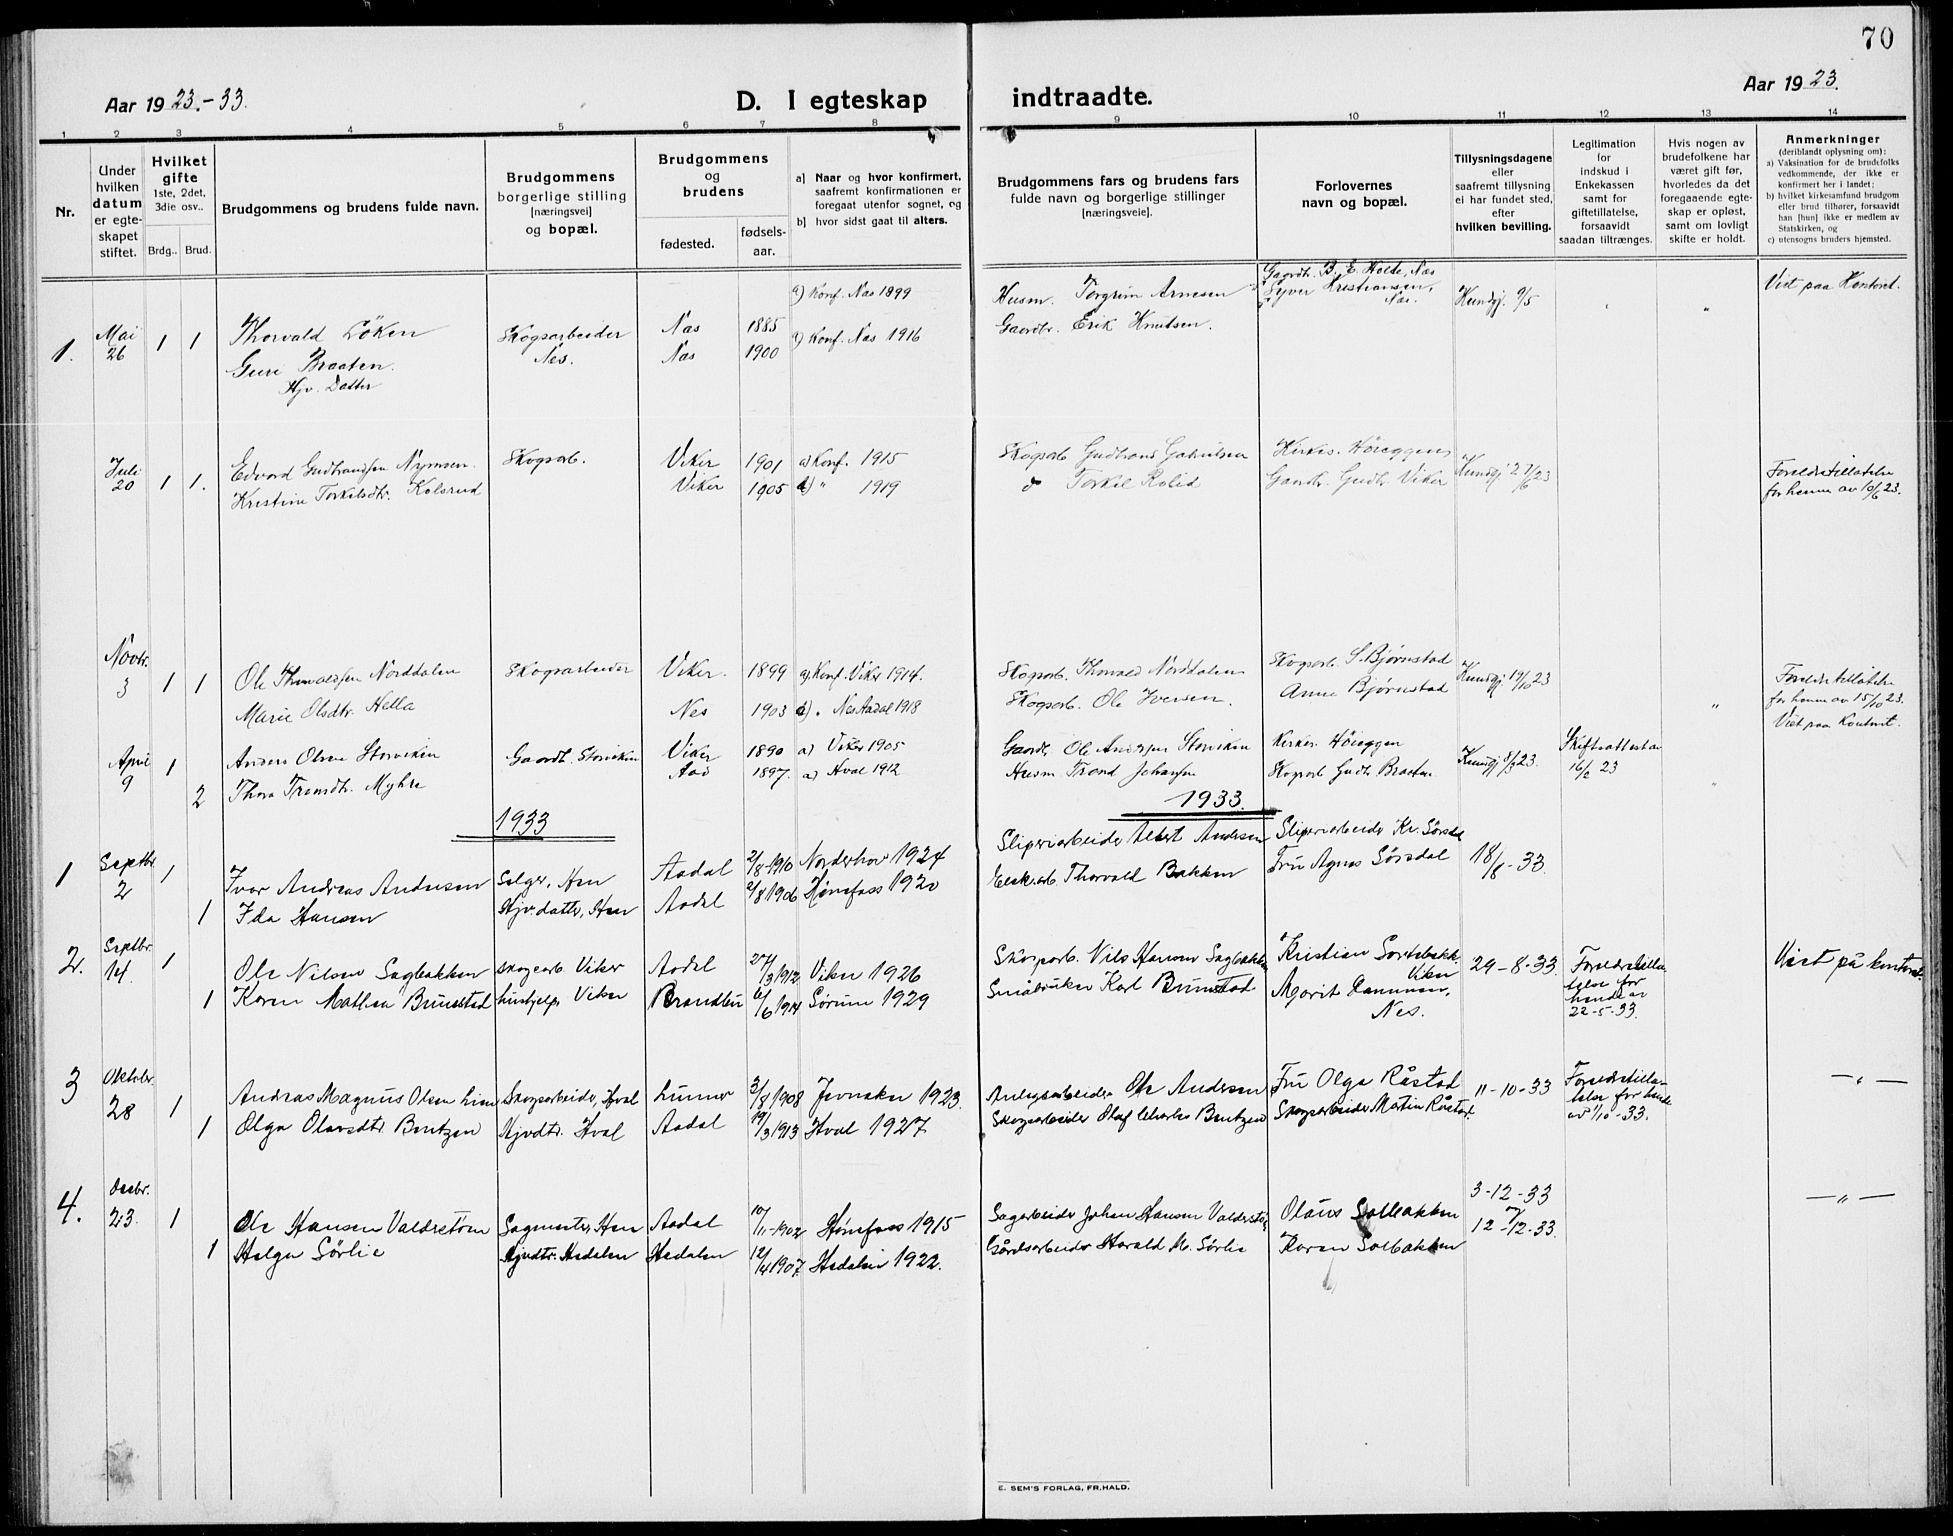 70
Aar 1923.-33.
D. I egteskap indtraadte.
Aar 1923.
1 2 3 4 5 6 7 8 9 10 11 12 13 14
Nr.
Under hvilken datum er egte-skapet stiftet.
Hvilket gifte 1ste, 2det, 3die osv..
Brdg.. Brud.
Brudgommens og brudens fulde navn.
Brudgommens borgerlige stilling [næringsvei] og bopæl.
Brudgommens og brudens
fødested.
fødsels-aar.
a) Naar og hvor konfirmert, saafremt konfirmationen er foregaat utenfor sognet, og
b) hvor sidst gaat til alters.
Brudgommens fars og brudens fars fulde navn og borgerlige stillinger [næringsveie].
Forlovernes navn og bopæl.
Tillysningsdagene eller saafremt tillysning ei har fundet sted, efter hvilken bevilling.
Legitimation for indskud i Enkekassen samt for giftetillatelse, forsaavidt saadan tiltrænges.
Hvis nogen av brudefolkene har været gift før, hvorledes da det foregaaende egte-skap er opløst, samt om lovligt skifte er holdt.
Anmerkninger (deriblandt oplysning om):
a) Vaksination for de brudefolks vedkommende, der ikke er konfirmert her i landet;
b) hvilket kirkesamfund brudgom eller brud tilhører, forsaavidt han [hun] ikke er medlem av Statskirken, og
c) utensogns bruders hjemsted.
a) Konf. Nas 1899 Husm. Torgrim Arnesen Gaardbr. B. E. Holte, Nas Kundgj. 9/5 Viet paa Kontoret.
1. Mai 26 1 1 Thorvald Löken Skogsarbeider Nas 1885 Konf. Nas 1916 Gaardbr. Erik Knutsen. Syver Kristiansen, Nas.
Guri Braaten. Nes. Nas 1900
Hjv. Datter
Juli 20 1 1. Edvard Gudbrandsen Nymoen. Skogsarb. Viker 1901 a) Konf. 1915 Skogsarb Gudbrand Kirkes. Höieggen Kundgj 2/6 23 Foreldretillatelse
Kristine Torkilsdtr. Kolsrud Viker 1905 " 1919 Torkil Gaardbr. Gudbr. Viker for henne av 10/6 23.
Novbr. 3 1 1 Ole Thorvaldsen Norddalen Skogsarbeider Viker. 1899 a) Konf. Viker 1914. Skogsarb. Thorvald Norddalen Skogsarb. S. Bjørnstad Kundgj 19/10 23 Foreldretillatelse
Marie Olsdtr. Hella Nes 1903 " Nes Aadal 1918 Skogsarb. Ole Iversen. Anne Bjørnstad " for henne av 15/10 23.
Viet paa Kontoret.
April 9 1 Anders Olsen Storviken Gaardbr. Storviken Viker 1890 a) Viker 1905 Gaardbr. Ole Andersen Storviken Kirkes. Höieggen Kundgj 8/3 23. Skifteattest av 16/2 23
2 Thora Trondsdtr. Myhre 1897. a) Hval 1912 Husm Trond Johansen Skogsarb Gudbr. Braaten "
1933 1933.
1 Septbr 2 1 Ivar Andreas Andersen Selger, Hen Aadal 2/8-1910 Norderhov 1924 Sliperiarbeider Albert Andersen Sliperiarbeider Kr. Sørsdal 18/8-33
1 Ida Hansen Hjv. datter, Hen Aadal 2/8 1906 Hønefoss 1920 Thorvald Bakken Fru Agnes Sørsdal
2. Septbr. 14. 1 Ole Nilsen Sagbakken skogsarb Viker Aadal 1912 Viker 1926 Skogsarb. Nils Hansen Sagbakken Kristian Viker 29-8-33. Foreldretilla- Viet på kontoret.
1 Karen Mathea Brunstad hushjelp, Viker Brandbu 6/6 1914 Sørum 1929 Småbruker Karl Brunstad. Marit Nes. telse for hende av 22-5-33.
3 Oktober 28 1 Andreas Magnus Olsen Skogsarbeider, Hval Lunner 3/8 1908 Jevnaker 1923. Anlegsarbeider Ole Andersen Fru Olga Råstad 11-10-33 Foreldretilla- —"—
1 Olga Olavsdtr Bentzen Hjvdtr. Hval Aadal 19/3 1913 Hval 1927 Skogsarbeider Olaf Charles Bentzen Skogsarbeider Martin Råstad. telse for hende av 1/10-33.
4. Desbr. 23. 1 Ole Hansen Valderstøen Sagmester, Hen Aadal 10/11-1902 Hønefoss 1915 Sagarbeider Johan Hansen Valderstøen Olaus Solbakken 3-12-33 —"—
1 Helga Sørlie Hjvdtr. Hedalen Hedalen 12/4 1907. Hedalen 1922. Gårdsarbeider Harald M. Sørlie Karen Solbakken 12-12-33.
E. SEM'S FORLAG, FR.HALD.